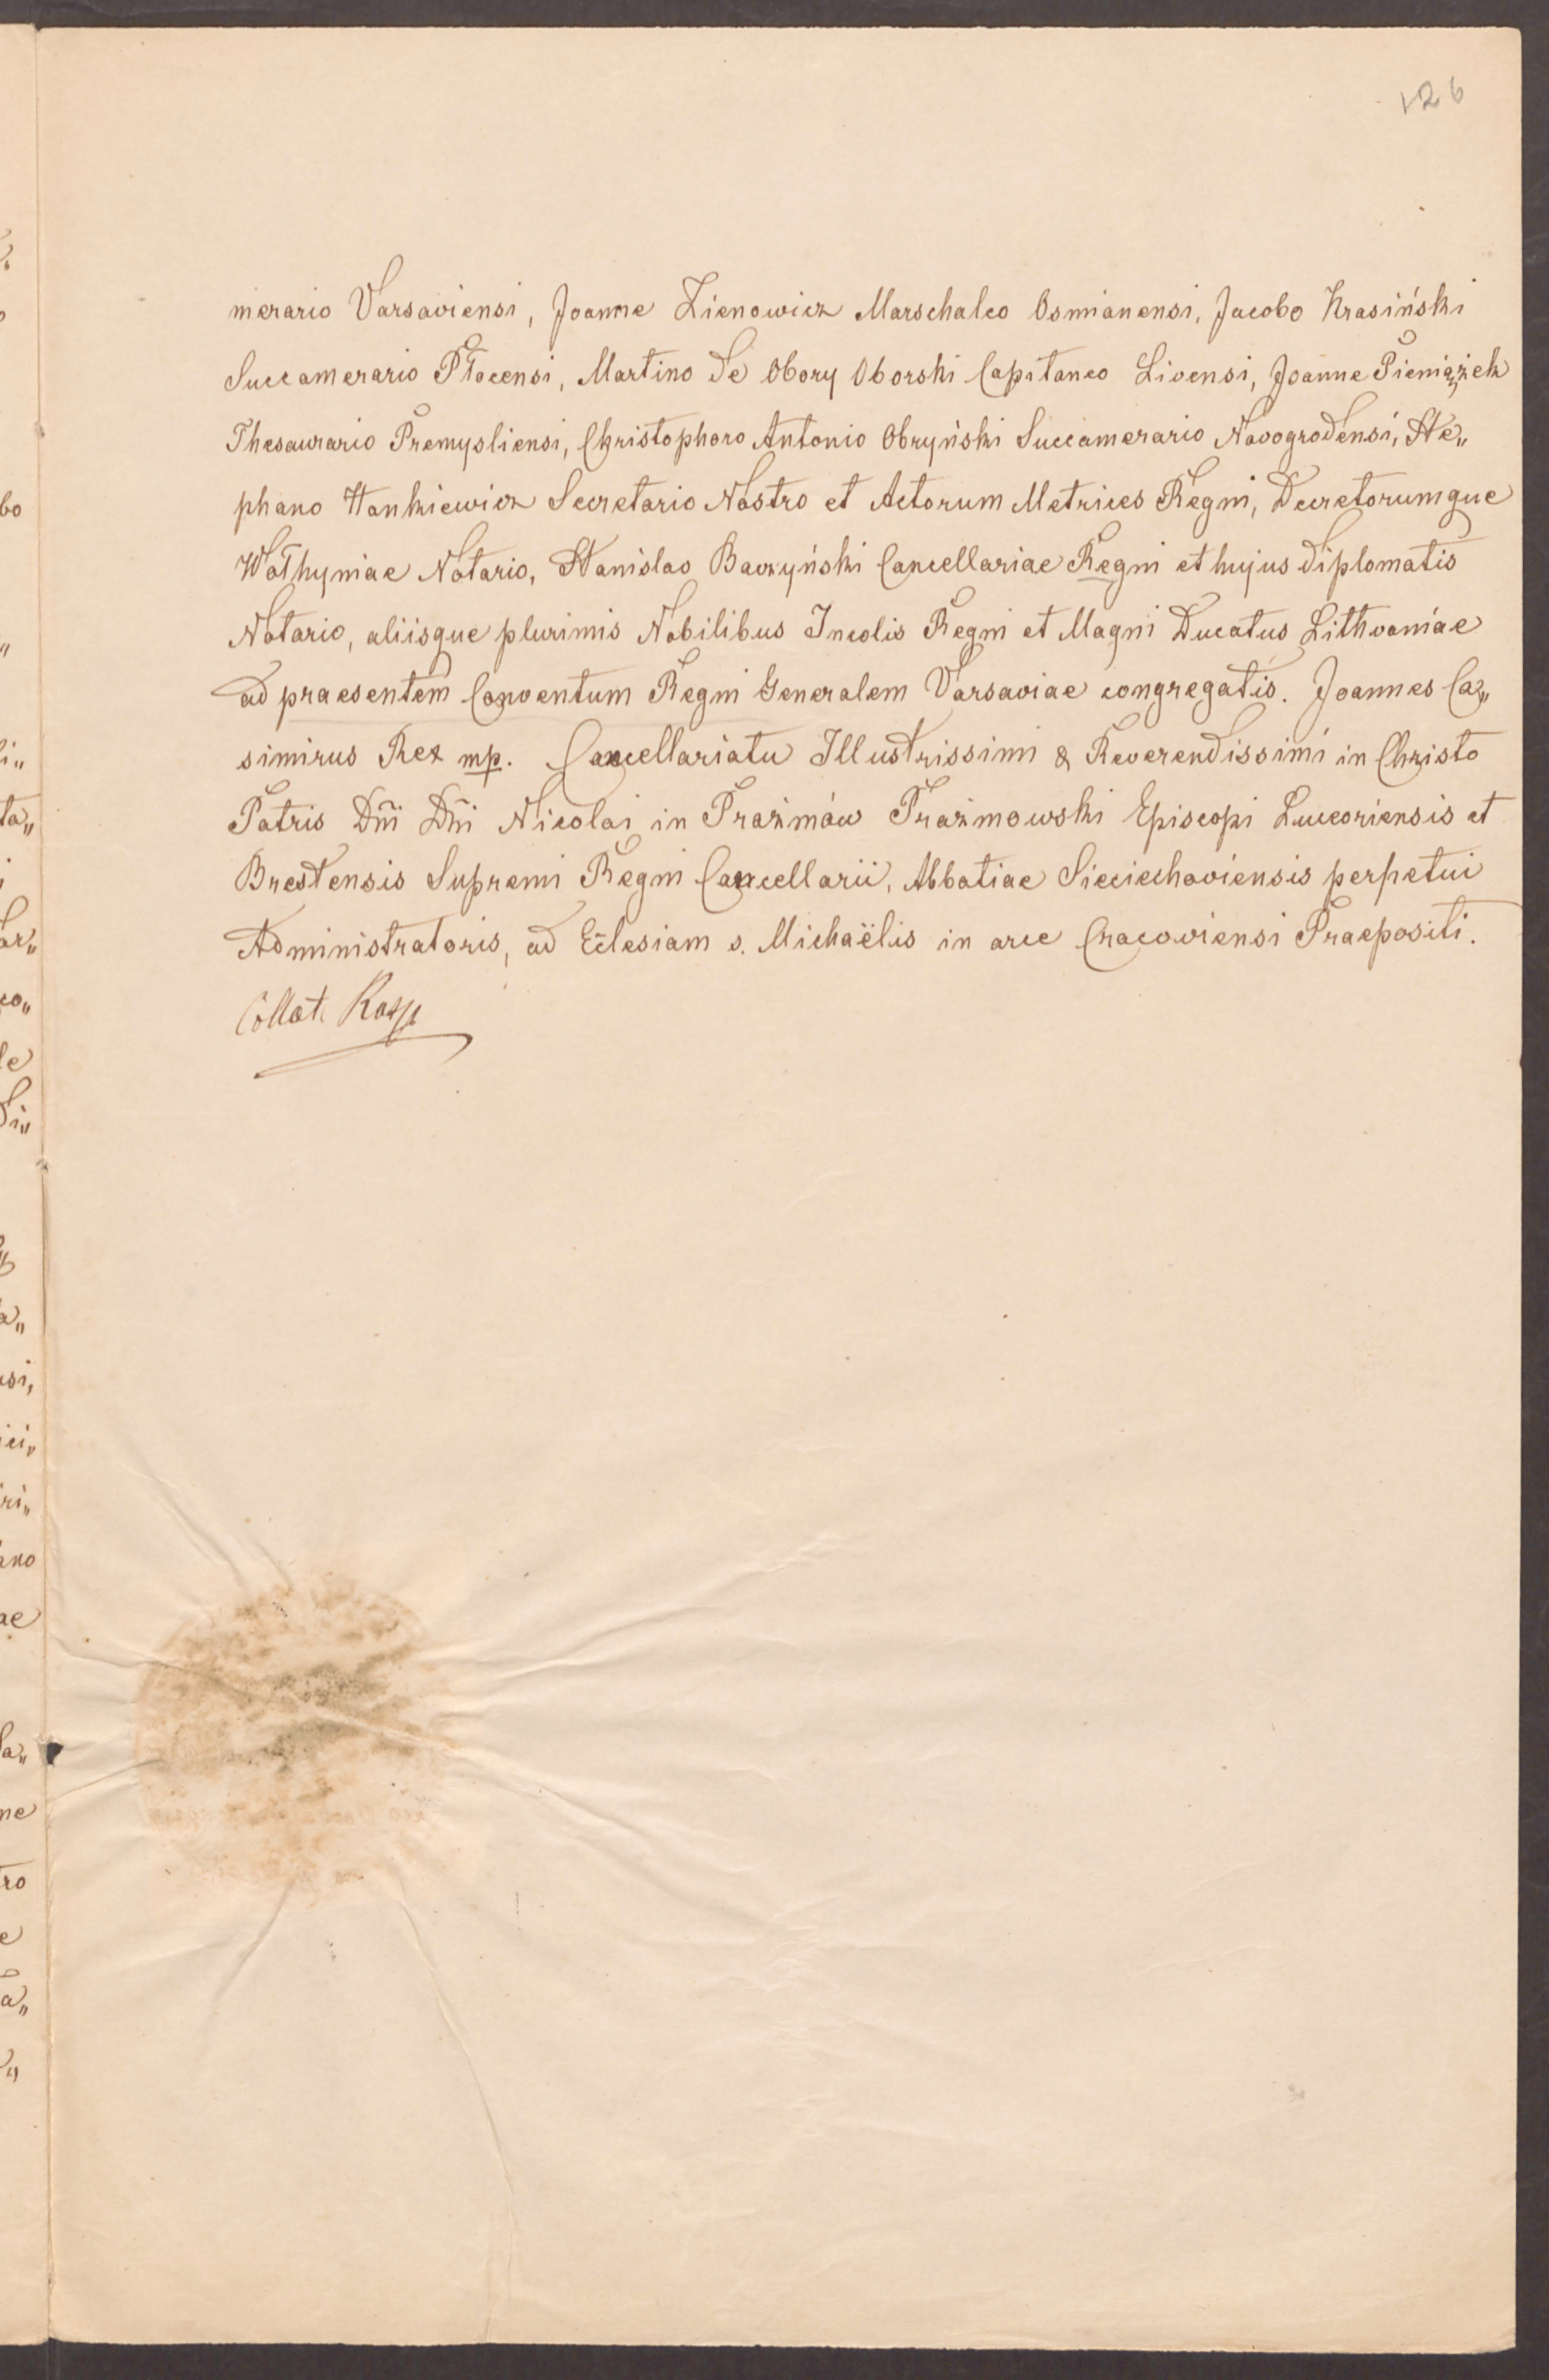 126
merario Varsaviensi, Joanne Zienowicz Marschalco Osmianensi, Jacobo Krasiński
Succamerario Płocensi, Martino de Obory Oborski Capitaneo Livensi, Joanne Pieniążek
Thesaurario Premysliensi, Christophoro Antonio Obryński Succamerario Novogrodensi, Ste„
phano Hankiewicz Secretario Nostro et Actorum Metrices Regni, Decretorumque
Wołhyniae Notario, Stanislao Baczyński Cancellariae Regni et hujus diplomatis
Notario, aliisque plurimis Nobilibus Incolis Regni et Magni Ducatus Lithvaniae
ad praesentem Conventum Regni Generalem Varsaviae congregatis. Joannes Ca„
simirus Rex mp. Cancellariatu Illustrissimi & Reverendissimi in Christo
Patris Dñi Dñi Nicolai in Prażmów Prażmowski Episcopi Luceoriensis et
Brestensis Supremi Regni Cancellarii, Abbatiae Sieciechoviensis perpetui
Administratoris, ad Ecl̃esiam s. Michaëlis in arce Cracoviensi Praepositi.
Collat.